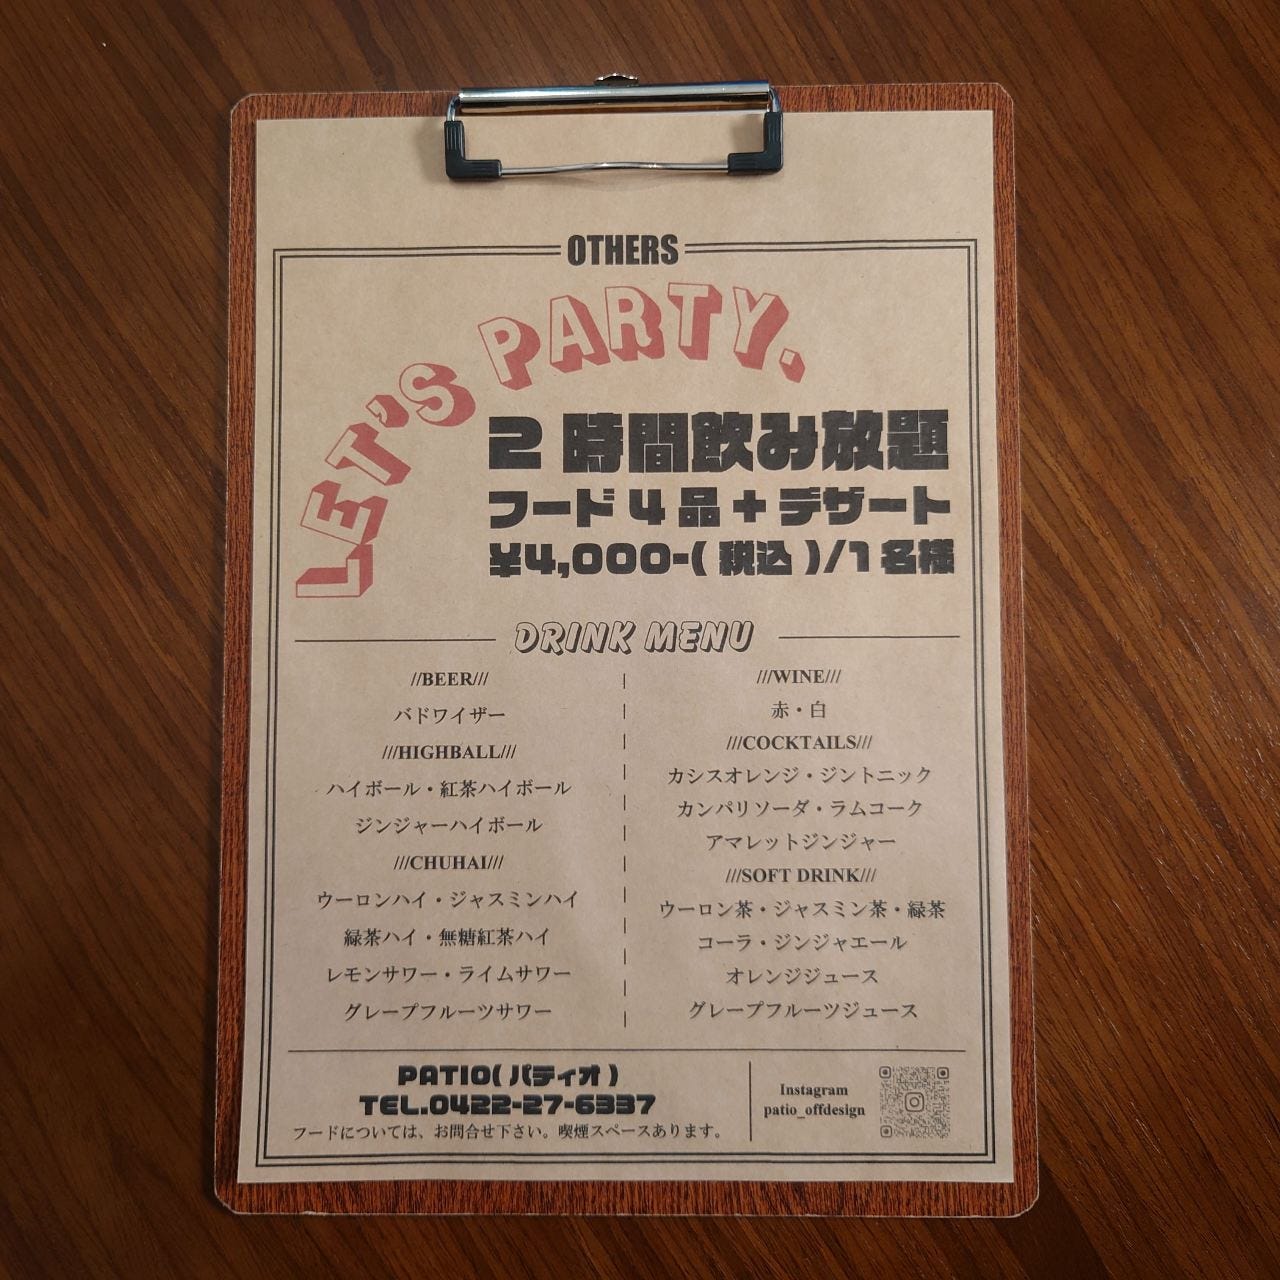 OTHERS
LET'S PARTY.
2時間飲み放題
フード4品+デザート
¥4,000-(税込)/1名様
DRINK MENU
//BEER///
バドワイザー
///HIGHBALL///
ハイボール・紅茶ハイボール
ジンジャーハイボール
///CHUHAI///
ウーロンハイ・ジャスミンハイ
緑茶ハイ・無糖紅茶ハイ
レモンサワー・ライムサワー
グレープフルーツサワー
///WINE///
赤・白
///COCKTAILS///
カシスオレンジ・ジントニック
カンパリソーダ・ラムコーク
アマレットジンジャー
///SOFT DRINK///
ウーロン茶・ジャスミン茶・緑茶
コーラ・ジンジャエール
オレンジジュース
グレープフルーツジュース
PATIO(パティオ)
TEL.0422-27-6337
フードについては、お問合せ下さい。喫煙スペースあります。
Instagram
patio_offdesign